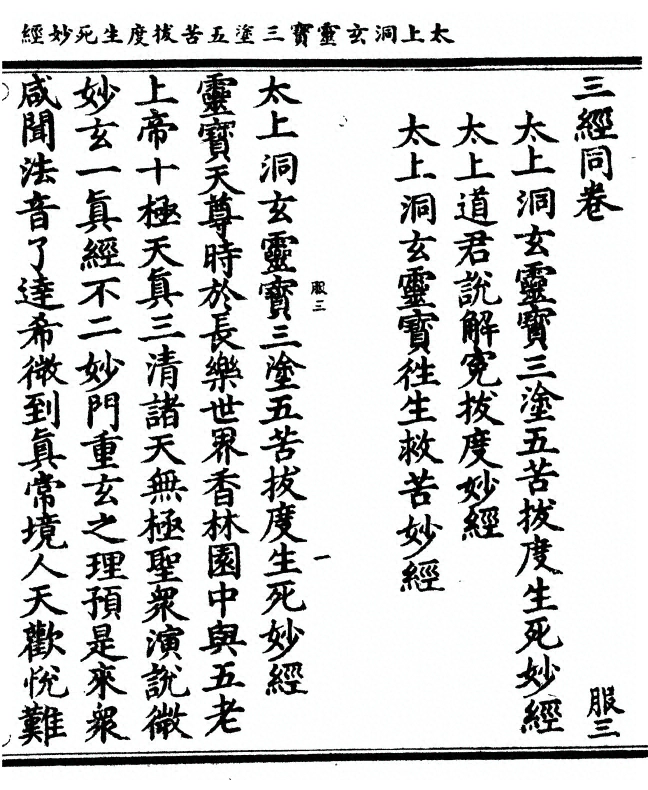 太上洞玄靈寶三塗五苦拔度生死妙經
三經同卷
太上洞玄靈寶三塗五苦拔度生死妙經
服三
太上道君說解冤拔度妙經
太上洞玄靈寶徃生救苦妙經
服三
一
太上洞玄靈寶三塗五苦拔度生死妙經
靈寶天尊時於長樂世界香林園中與五老
上帝十極天眞三清諸天無極聖衆演說微
妙玄一眞經不二妙門重玄之理預是來衆
咸聞法音了達希微到眞常境人天歡悅難